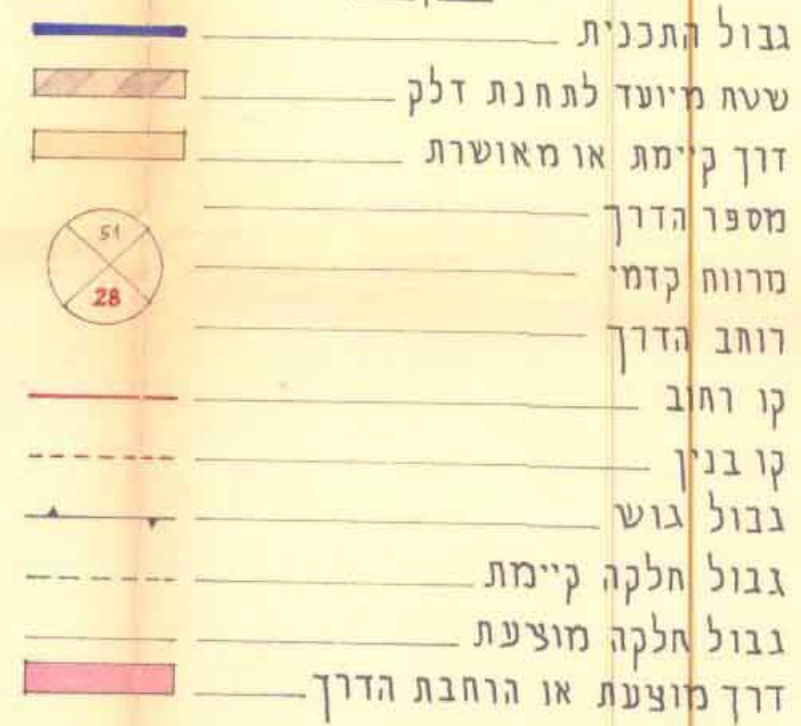 גבול התכנית
שטח מיועד לתחנת דלק
דרך קיימת או מאושרת
מספר הדרך
51
מרווח קדמי
28
רוחב הדרך
קו רחוב
קו בנין
גבול גוש
גבול חלקה קיימת
גבול חלקה מוצעת
דרך מוצעת או הרחבת הדרך